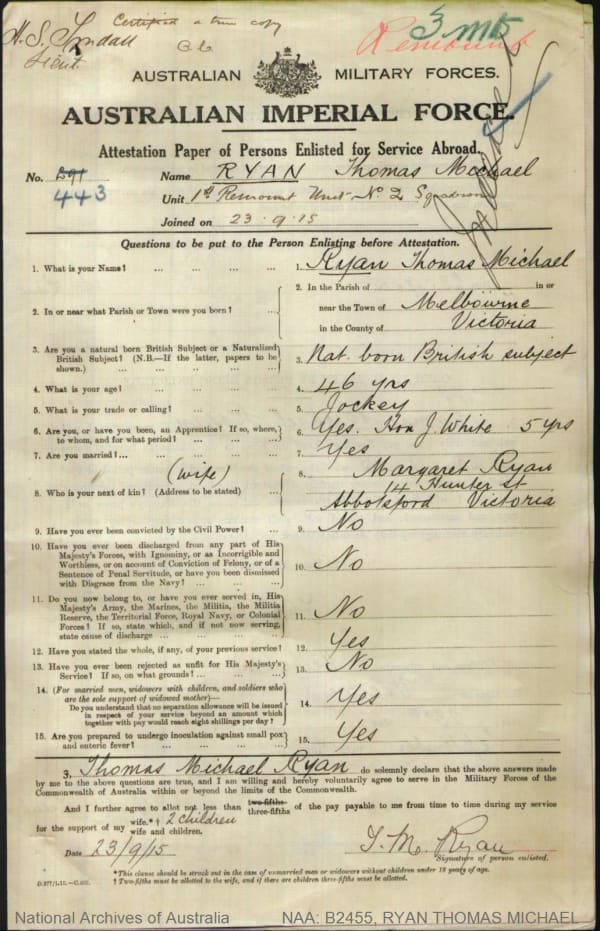 Certified a true copy
H.S. Tyndall
Lieut
3 MD
Remount
AUSTRALIAN MILITARY FORCES.
AUSTRALIAN IMPERIAL FORCE.
Attestation Paper of Persons Enlisted for Service Abroad.
No. 391 Name RYAN Thomas Michael
443 Unit 1st Remount Unit No 2 Squadron
Joined on 23.9.15
Questions to be put to the Person Enlisting before Attestation.
1. What is your Name? ... ... ... ... 1. Ryan Thomas Michael
2. In or near what Parish or Town were you born? ... ... 2. In the Parish of in or
near the Town of Melbourne
in the County of Victoria
3. Are you a natural born British Subject or a Naturalized British Subject? (N.B.—If the latter, papers to be shown.) ... ... ... ... 3. Nat. born British subject
4. What is your age? ... ... ... ... 4. 46 yrs
5. What is your trade or calling? ... ... ... 5. Jockey
6. Are you, or have you been, an Apprentice? If so, where, to whom, and for what period? ... ... ... 6. Yes. Hon J. White 5 yrs
7. Are you married?... ... ... ... 7. Yes
(wife)
8. Who is your next of kin? (Address to be stated) ... 8. Margaret Ryan
14 Hunter St
Abbotsford Victoria
9. Have you ever been convicted by the Civil Power? ... 9. No
10. Have you ever been discharged from any part of His Majesty's Forces, with Ignominy, or as Incorrigible and Worthless, or on account of Conviction of Felony, or of a Sentence of Penal Servitude, or have you been dismissed with Disgrace from the Navy? ... ... ... 10. No
11. Do you now belong to, or have you ever served in, His Majesty's Army, the Marines, the Militia, the Militia Reserve, the Territorial Force, Royal Navy, or Colonial Forces? If so, state which, and if not now serving, state cause of discharge ... ... ... ... 11. No
12. Have you stated the whole, if any, of your previous service? 12. Yes
13. Have you ever been rejected as unfit for His Majesty's Service? If so, on what grounds? ... ... ... 13. No
14. (For married men, widowers with children, and soldiers who are the sole support of widowed mother)—
Do you understand that no separation allowance will be issued in respect of your service beyond an amount which together with pay would reach eight shillings per day? ... 14. Yes
15. Are you prepared to undergo inoculation against small pox and enteric fever? ... ... ... ... 15. Yes
I, Thomas Michael Ryan do solemnly declare that the above answers made
by me to the above questions are true, and I am willing and hereby voluntarily agree to serve in the Military Forces of the
Commonwealth of Australia within or beyond the limits of the Commonwealth.
And I further agree to allot not less than two-fifths three-fifths of the pay payable to me from time to time during my service
for the support of my wife.*† 2 children
wife and children.
Date 23/9/15 T. M. Ryan
Signature of person enlisted.
* This clause should be struck out in the case of unmarried men or widowers without children under 18 years of age.
† Two-fifths must be allotted to the wife, and if there are children three-fifths must be allotted.
D.277/1.15.—C.692.
National Archives of Australia NAA: B2455, RYAN THOMAS MICHAEL